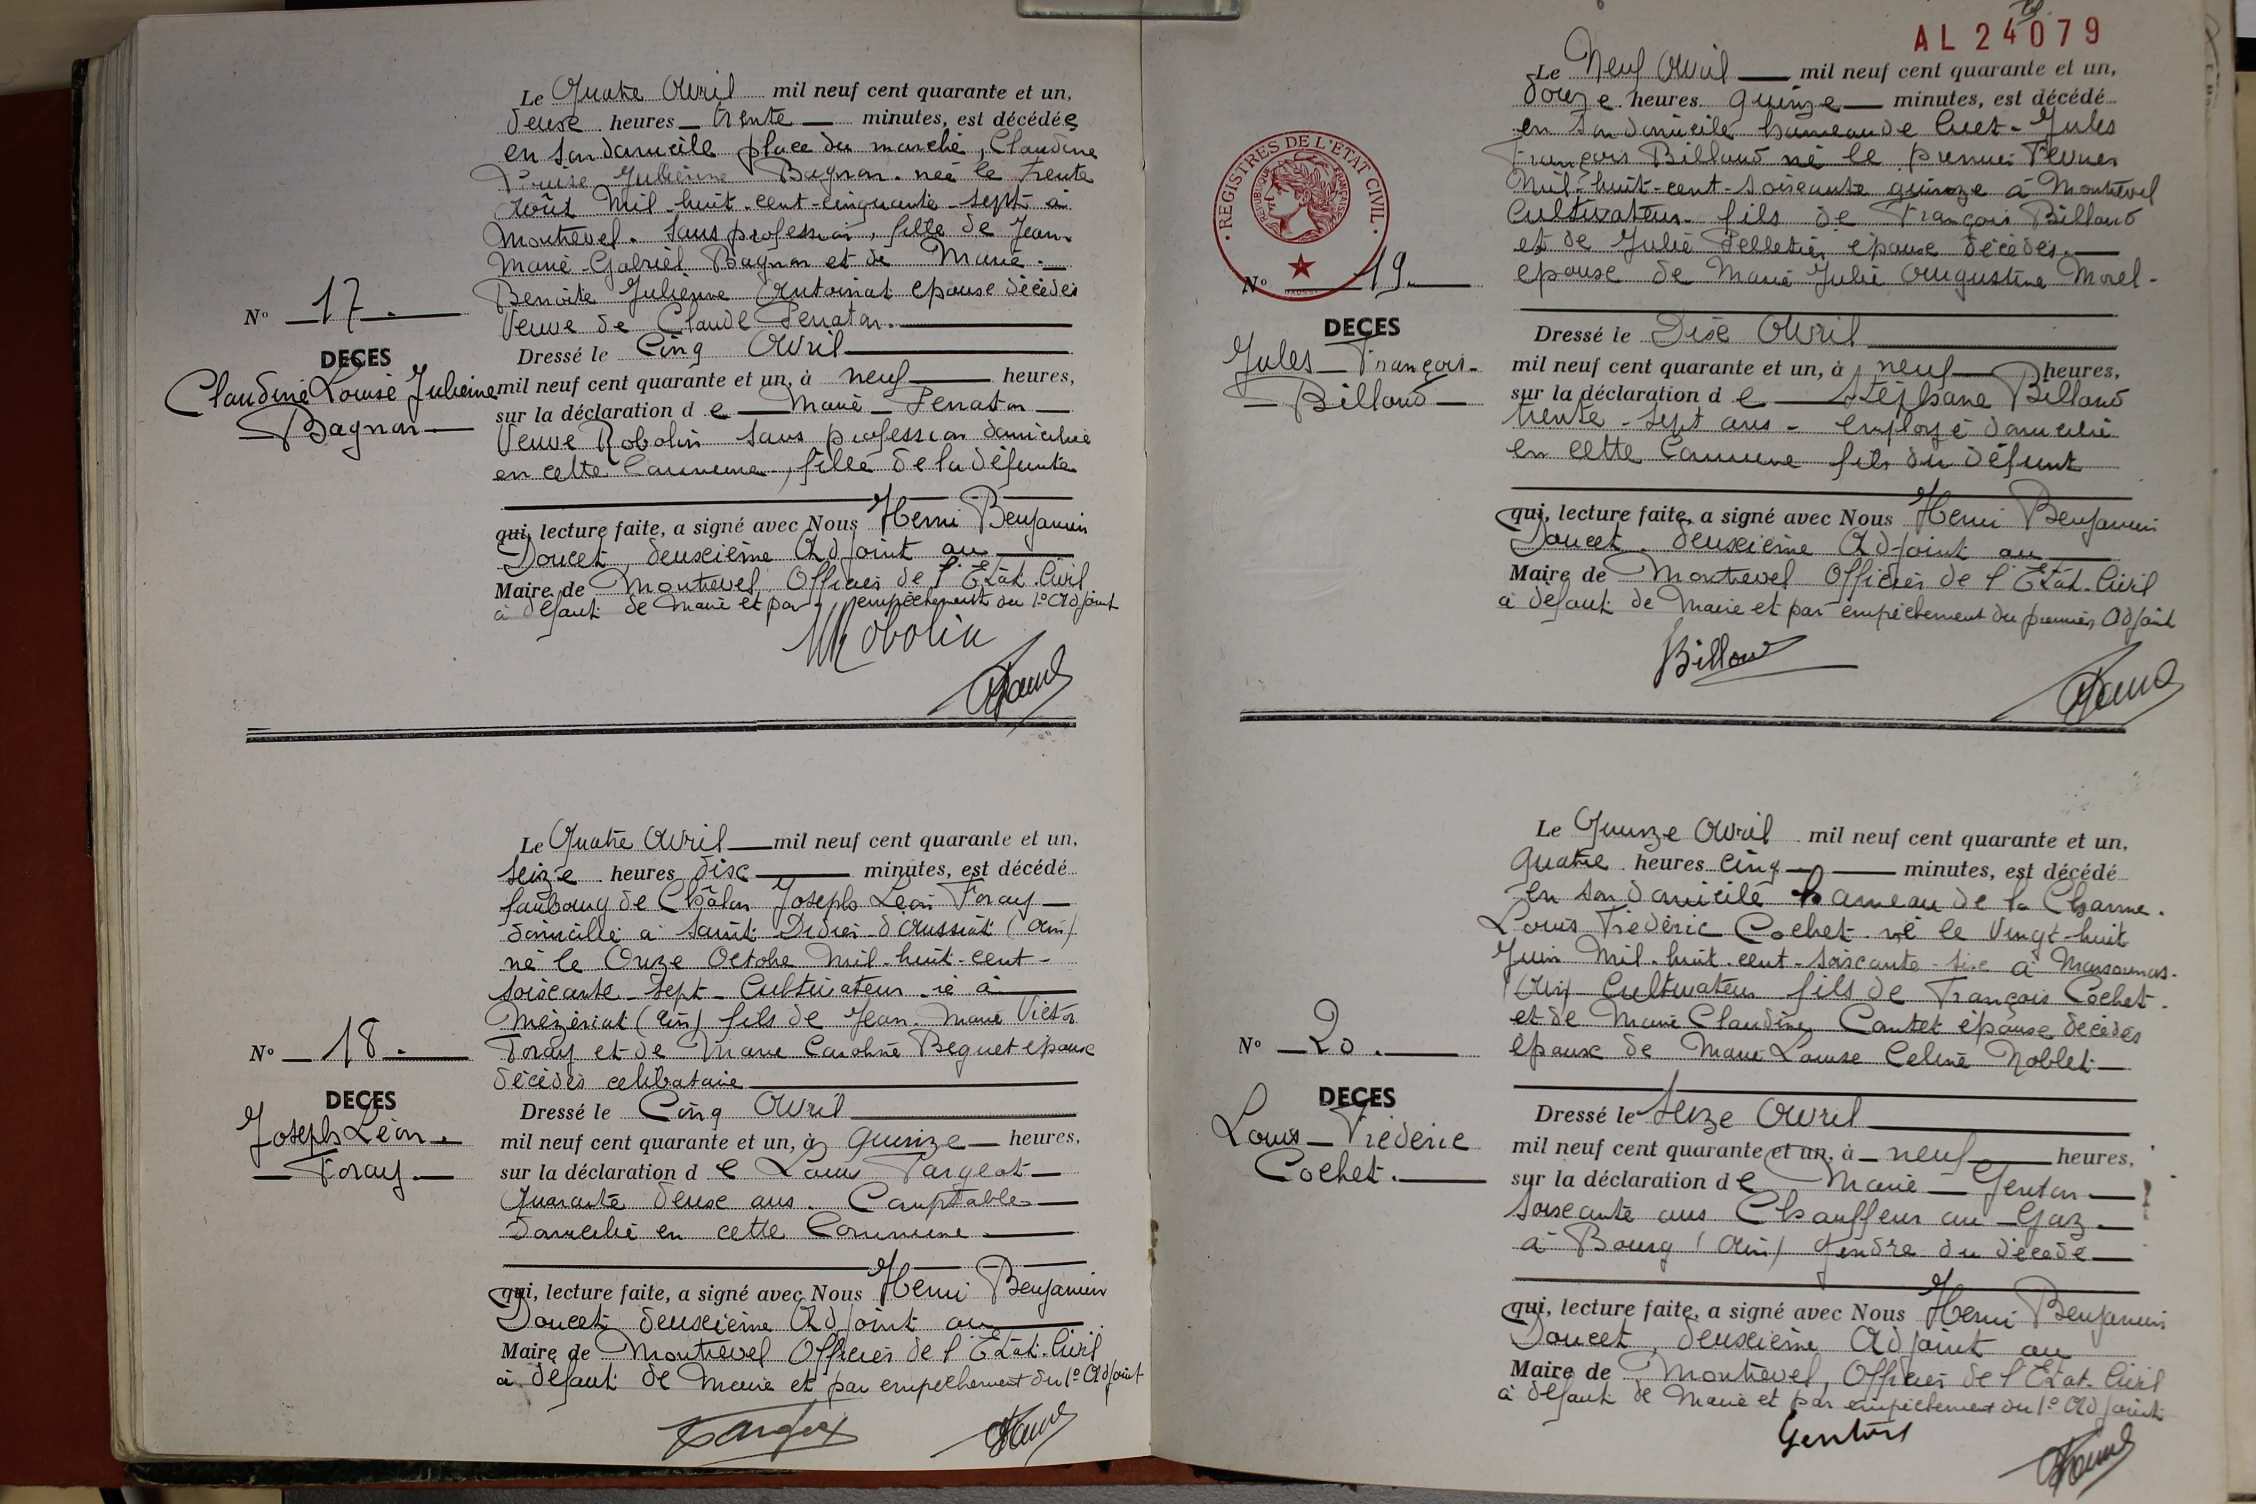 Le Quatre Avril mil neuf cent quarante et un,
deuxe heures trente minutes, est décédée
en son domicile place du marché, Claudine
Louise Julienne Bagnon née le trente
Août Mil-huit-cent-cinquante-sept à
Montrevel. Sans profession, fille de Jean
Marie Gabriel Bagnon et de Marie
Benoite Julienne Antoinat epoux décédés
Veuve de Claude Ferraton.
Nº 17.
DECES
Claudine Louise Julienne
Bagnon
Dressé le Cinq Avril
mil neuf cent quarante et un, à neuf heures,
sur la déclaration de Marie Ferraton
Veuve Robolin sans profession domiciliée
en cette Commune, fille de la défunte
qui, lecture faite, a signé avec Nous Henri Benjamin
Doucet, deuxième Adjoint au
Maire de Montrevel Officier de l'Etat-Civil
à défaut de Maire et par empêchement du 1º Adjoint
MRobolin
Le Quatre Avril mil neuf cent quarante et un,
Seize heures dix minutes, est décédé
faubourg de Châlon Joseph Léon Foray
domicilié à Saint Didier d'Aussiat (Ain)
né le Onze Octobre Mil-huit-cent-
soixante-sept Cultivateur né à
Mézériat (Ain) fils de Jean Marie Victor
Foray et de Marie Caroline Beguet epoux
décédés célibataire
Nº 18.
DECES
Joseph Léon
Foray
Dressé le Cinq Avril
mil neuf cent quarante et un, à quinze heures,
sur la déclaration de Louis Fargeot
Quarante deux ans. Comptable
domicilié en cette Commune
qui, lecture faite, a signé avec Nous Henri Benjamin
Doucet deuxième Adjoint au
Maire de Montrevel Officier de l'Etat-Civil
à défaut de Maire et par empêchement du 1º Adjoint
AL 24079
REGISTRES DE L'ETAT CIVIL
REPUBLIQUE FRANÇAISE
Le Neuf Avril mil neuf cent quarante et un,
douze heures quinze minutes, est décédé
en son domicile hameau de Cuet Jules
François Billoud né le premier Février
Mil-huit-cent-soixante quinze à Montrevel
Cultivateur fils de François Billoud
et de Julie Pelletier epoux décédés
epoux de Marie Julie Augustine Morel
Nº 19.
DECES
Jules François
Billoud
Dressé le Dix Avril
mil neuf cent quarante et un, à neuf heures,
sur la déclaration de Stéphane Billoud
trente-sept ans employé domicilié
en cette Commune fils du défunt
qui, lecture faite, a signé avec Nous Henri Benjamin
Doucet, deuxième Adjoint au
Maire de Montrevel Officier de l'Etat-Civil
à défaut de Maire et par empêchement du premier Adjoint
Billoud
Le Quinze Avril mil neuf cent quarante et un,
quatre heures cinq minutes, est décédé
en son domicile hameau de la Charme.
Louis Frédéric Cochet né le Vingt-huit
Juin Mil-huit-cent-soixante-six à Marsonnas
(Ain) Cultivateur fils de François Cochet
et de Marie Claudine Contet epoux décédés
epoux de Marie Louise Celine Noblet
Nº 20.
DECES
Louis Frédéric
Cochet.
Dressé le Seize Avril
mil neuf cent quarante et un, à neuf heures,
sur la déclaration de Marie Genton
soixante ans Chauffeur au Gaz
à Bourg (Ain) gendre du décédé
qui, lecture faite, a signé avec Nous Henri Benjamin
Doucet, deuxième Adjoint au
Maire de Montrevel, Officier de l'Etat-Civil
à défaut de Maire et par empêchement du 1º Adjoint
Genton